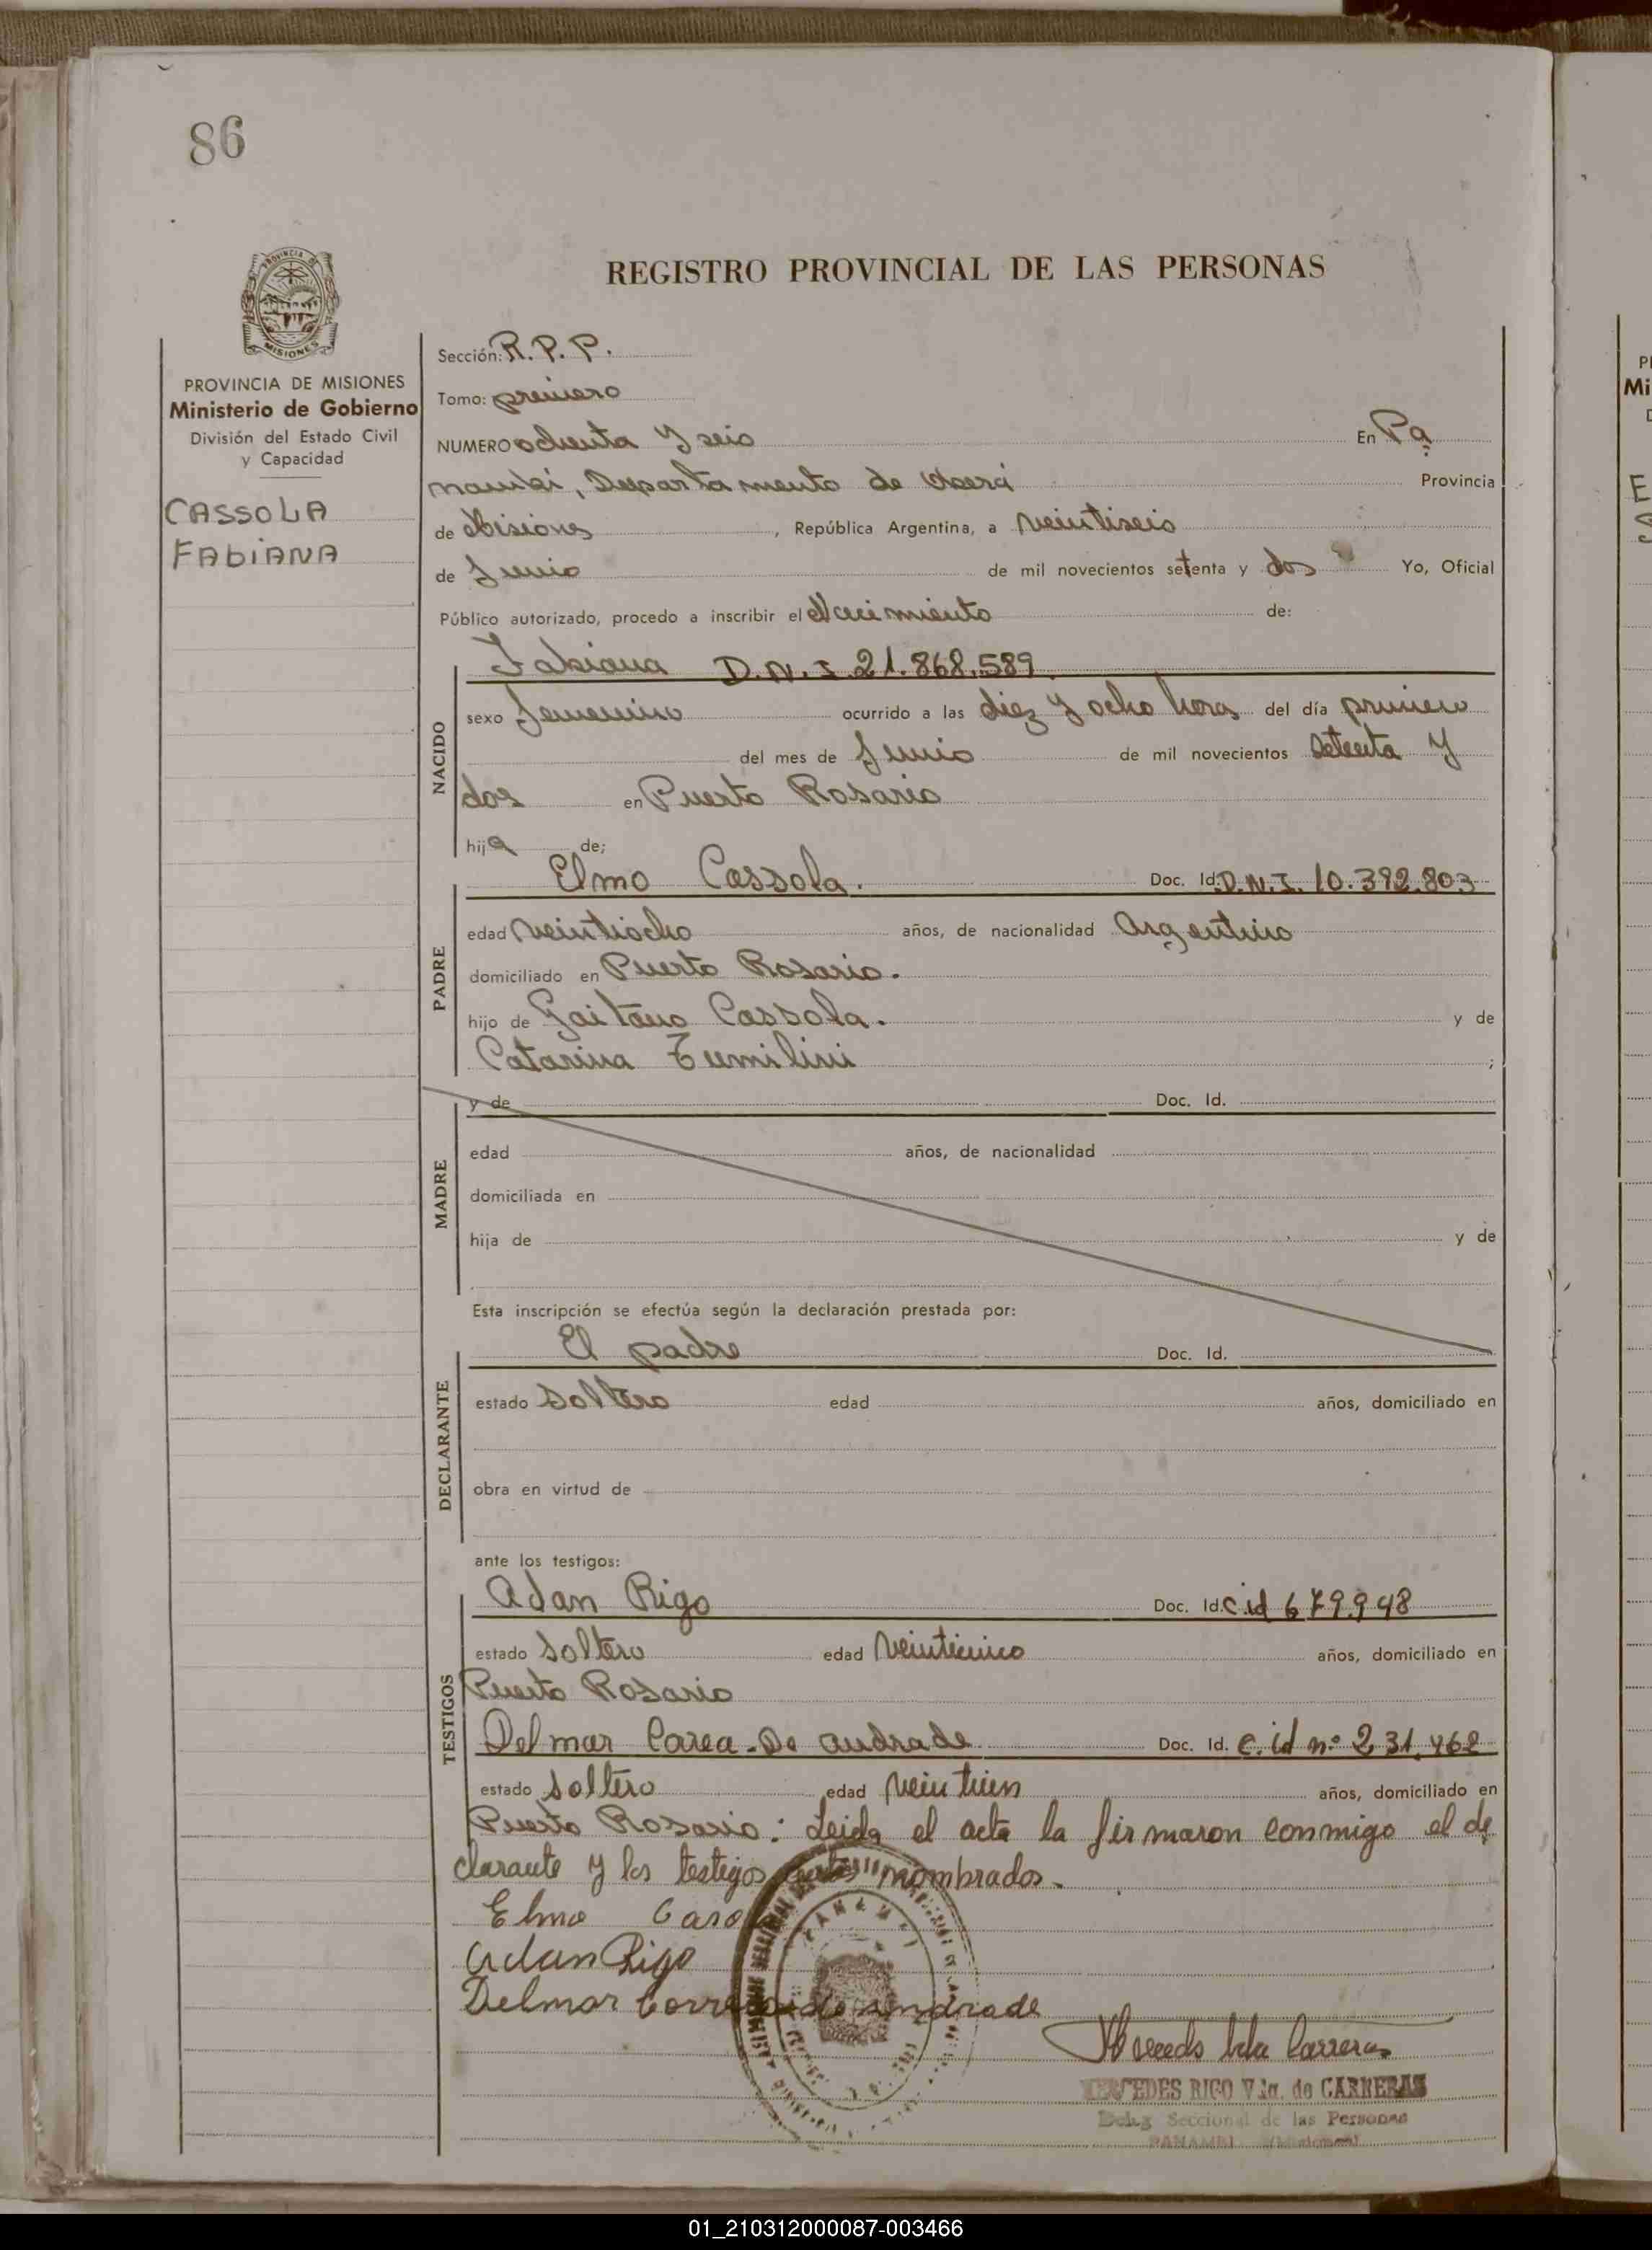 86
PROVINCIA DE
MISIONES
REGISTRO PROVINCIAL DE LAS PERSONAS
PROVINCIA DE MISIONES
Ministerio de Gobierno
División del Estado Civil
y Capacidad
CASSOLA
FABIANA
Sección: R. P. P.
Tomo: primero
NUMERO ochenta y seis En Pa
nambí, Departamento de Oberá Provincia
de Misiones, República Argentina, a veintiseis
de Junio de mil novecientos setenta y dos Yo, Oficial
Público autorizado, procedo a inscribir el Nacimiento de:
Fabiana D.N.I. 21.868.589
NACIDO
sexo femenino ocurrido a las diez y ocho horas del día primero
del mes de Junio de mil novecientos setenta y
dos en Puerto Rosario
hija de;
Elmo Cassola. Doc. Id. D.N.I. 10.392.803
PADRE
edad veintiocho años, de nacionalidad Argentino
domiciliado en Puerto Rosario.
hijo de Gaitano Cassola. y de
Catarina Tumilini ;
y de Doc. Id.
MADRE
edad años, de nacionalidad
domiciliada en
hija de y de
Esta inscripción se efectúa según la declaración prestada por:
El padre Doc. Id.
DECLARANTE
estado soltero edad años, domiciliado en
obra en virtud de
ante los testigos:
Adan Rigo Doc. Id. c.id 679.948
TESTIGOS
estado soltero edad veinticinco años, domiciliado en
Puerto Rosario
Delmar Carea De andrade Doc. Id. c. id nº 231.462
estado soltero edad años, domiciliado en
Puerto Rosario: Leida el acta la firmaron conmigo el de
clarante y los testigos antes nombrados.
Elmo
Adan Rigo
Delmar andrade
PANAMBI
Carreras
MERCEDES RIGO Vda. de CARRERAS
Deleg Seccional de las Personas
PANAMBI (Misiones)
01_210312000087-003466